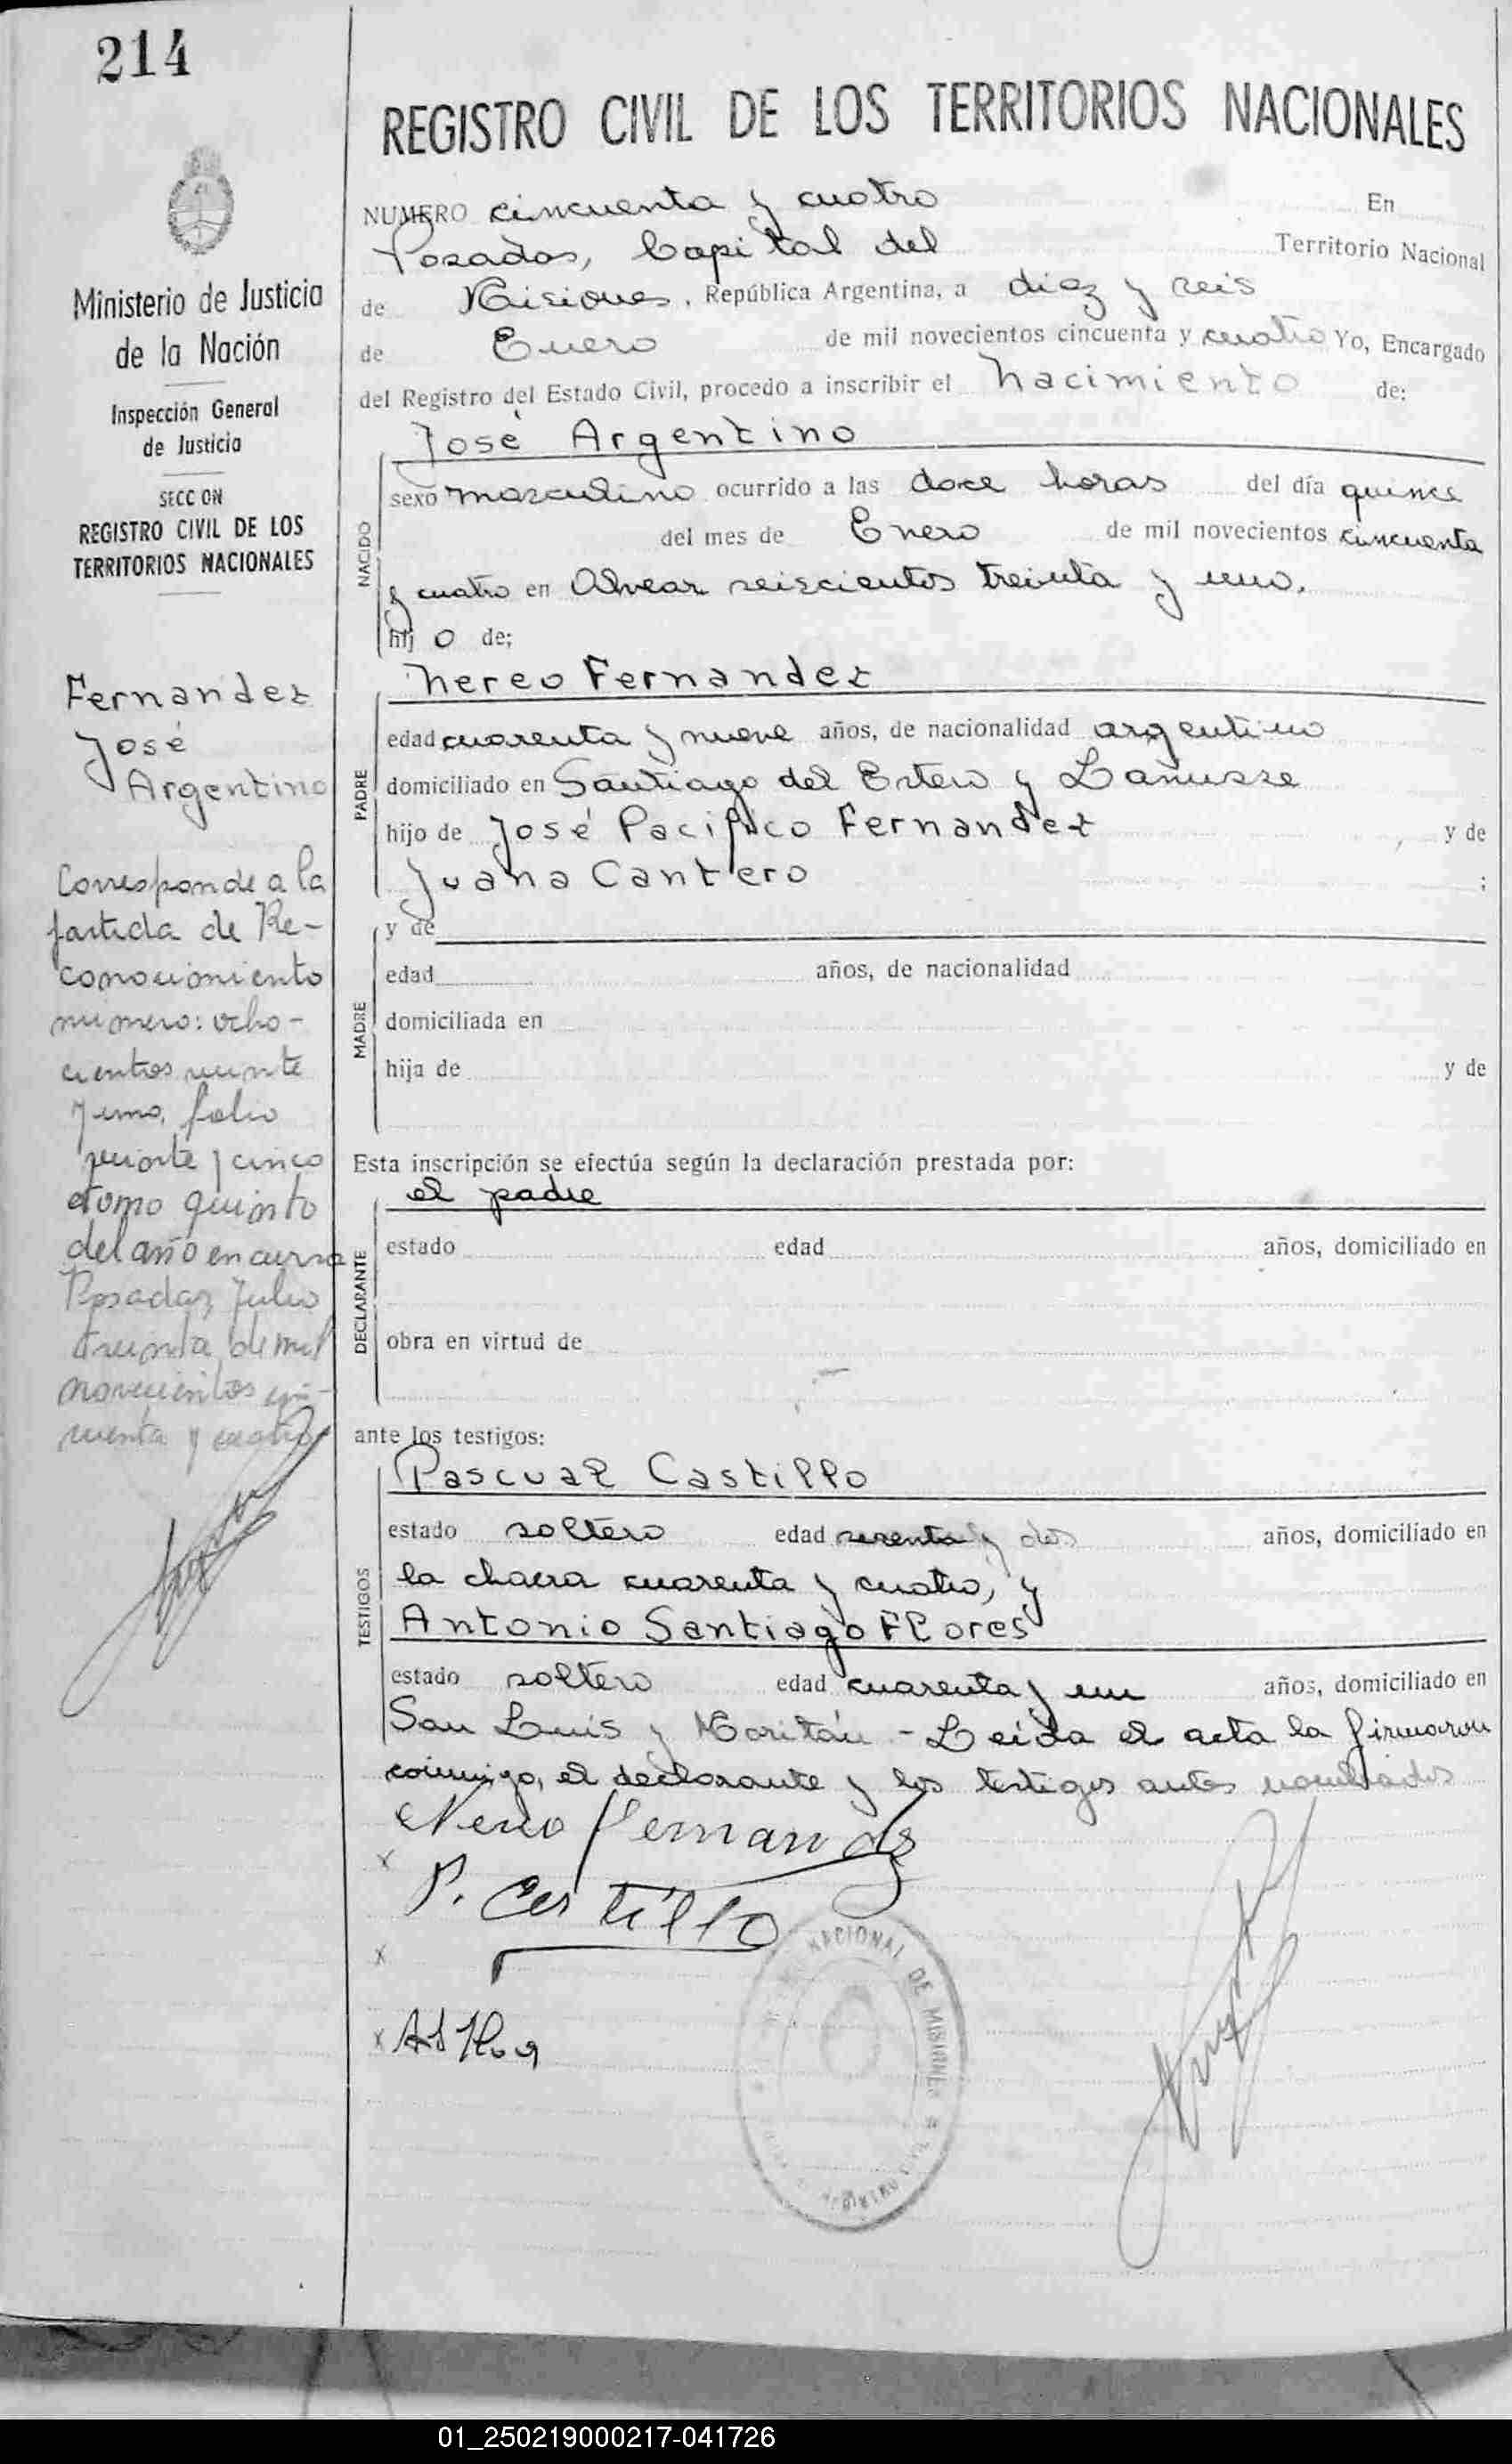 214
REGISTRO CIVIL DE LOS TERRITORIOS NACIONALES
Ministerio de Justicia
de la Nación
Inspección General
de Justicia
SECC ON
REGISTRO CIVIL DE LOS
TERRITORIOS NACIONALES
Fernandez
José
Argentino
Corresponde a la
partida de Re-
conocimiento
numero: ocho-
cientos veinte
y uno, folio
veinte y cinco
tomo quinto
del año en curso
Posadas, Julio
treinta de mil
novecientos cin-
cuenta y cuatro
NUMERO cincuenta y cuatro En
Posadas, Capital del Territorio Nacional
de Misiones, República Argentina, a diez y seis
de Enero de mil novecientos cincuenta y cuatro Yo, Encargado
del Registro del Estado Civil, procedo a inscribir el nacimiento de:
José Argentino
NACIDO
sexo masculino ocurrido a las doce horas del día quince
del mes de Enero de mil novecientos cincuenta
y cuatro en Alvear seiscientos treinta y uno.
hij o de;
Nereo Fernandez
PADRE
edad cuarenta y nueve años, de nacionalidad argentino
domiciliado en Santiago del Estero y Lanusse
hijo de José Pacifico Fernandez, y de
Juana Cantero ;
y de
MADRE
edad años, de nacionalidad
domiciliada en
hija de y de
Esta inscripción se efectúa según la declaración prestada por:
el padre
DECLARANTE
estado edad años, domiciliado en
obra en virtud de
ante los testigos:
Pascual Castillo
TESTIGOS
estado soltero edad sesenta y dos años, domiciliado en
la chacra cuarenta y cuatro, y
Antonio Santiago Flores
estado soltero edad cuarenta y un años, domiciliado en
San Luis y Moritán - Leída el acta la firmaron
conmigo, el declarante y los testigos antes nombrados
Nereo Fernandez
x
P. Castillo
x
x
NACIONAL DE MISIONES
01_250219000217-041726